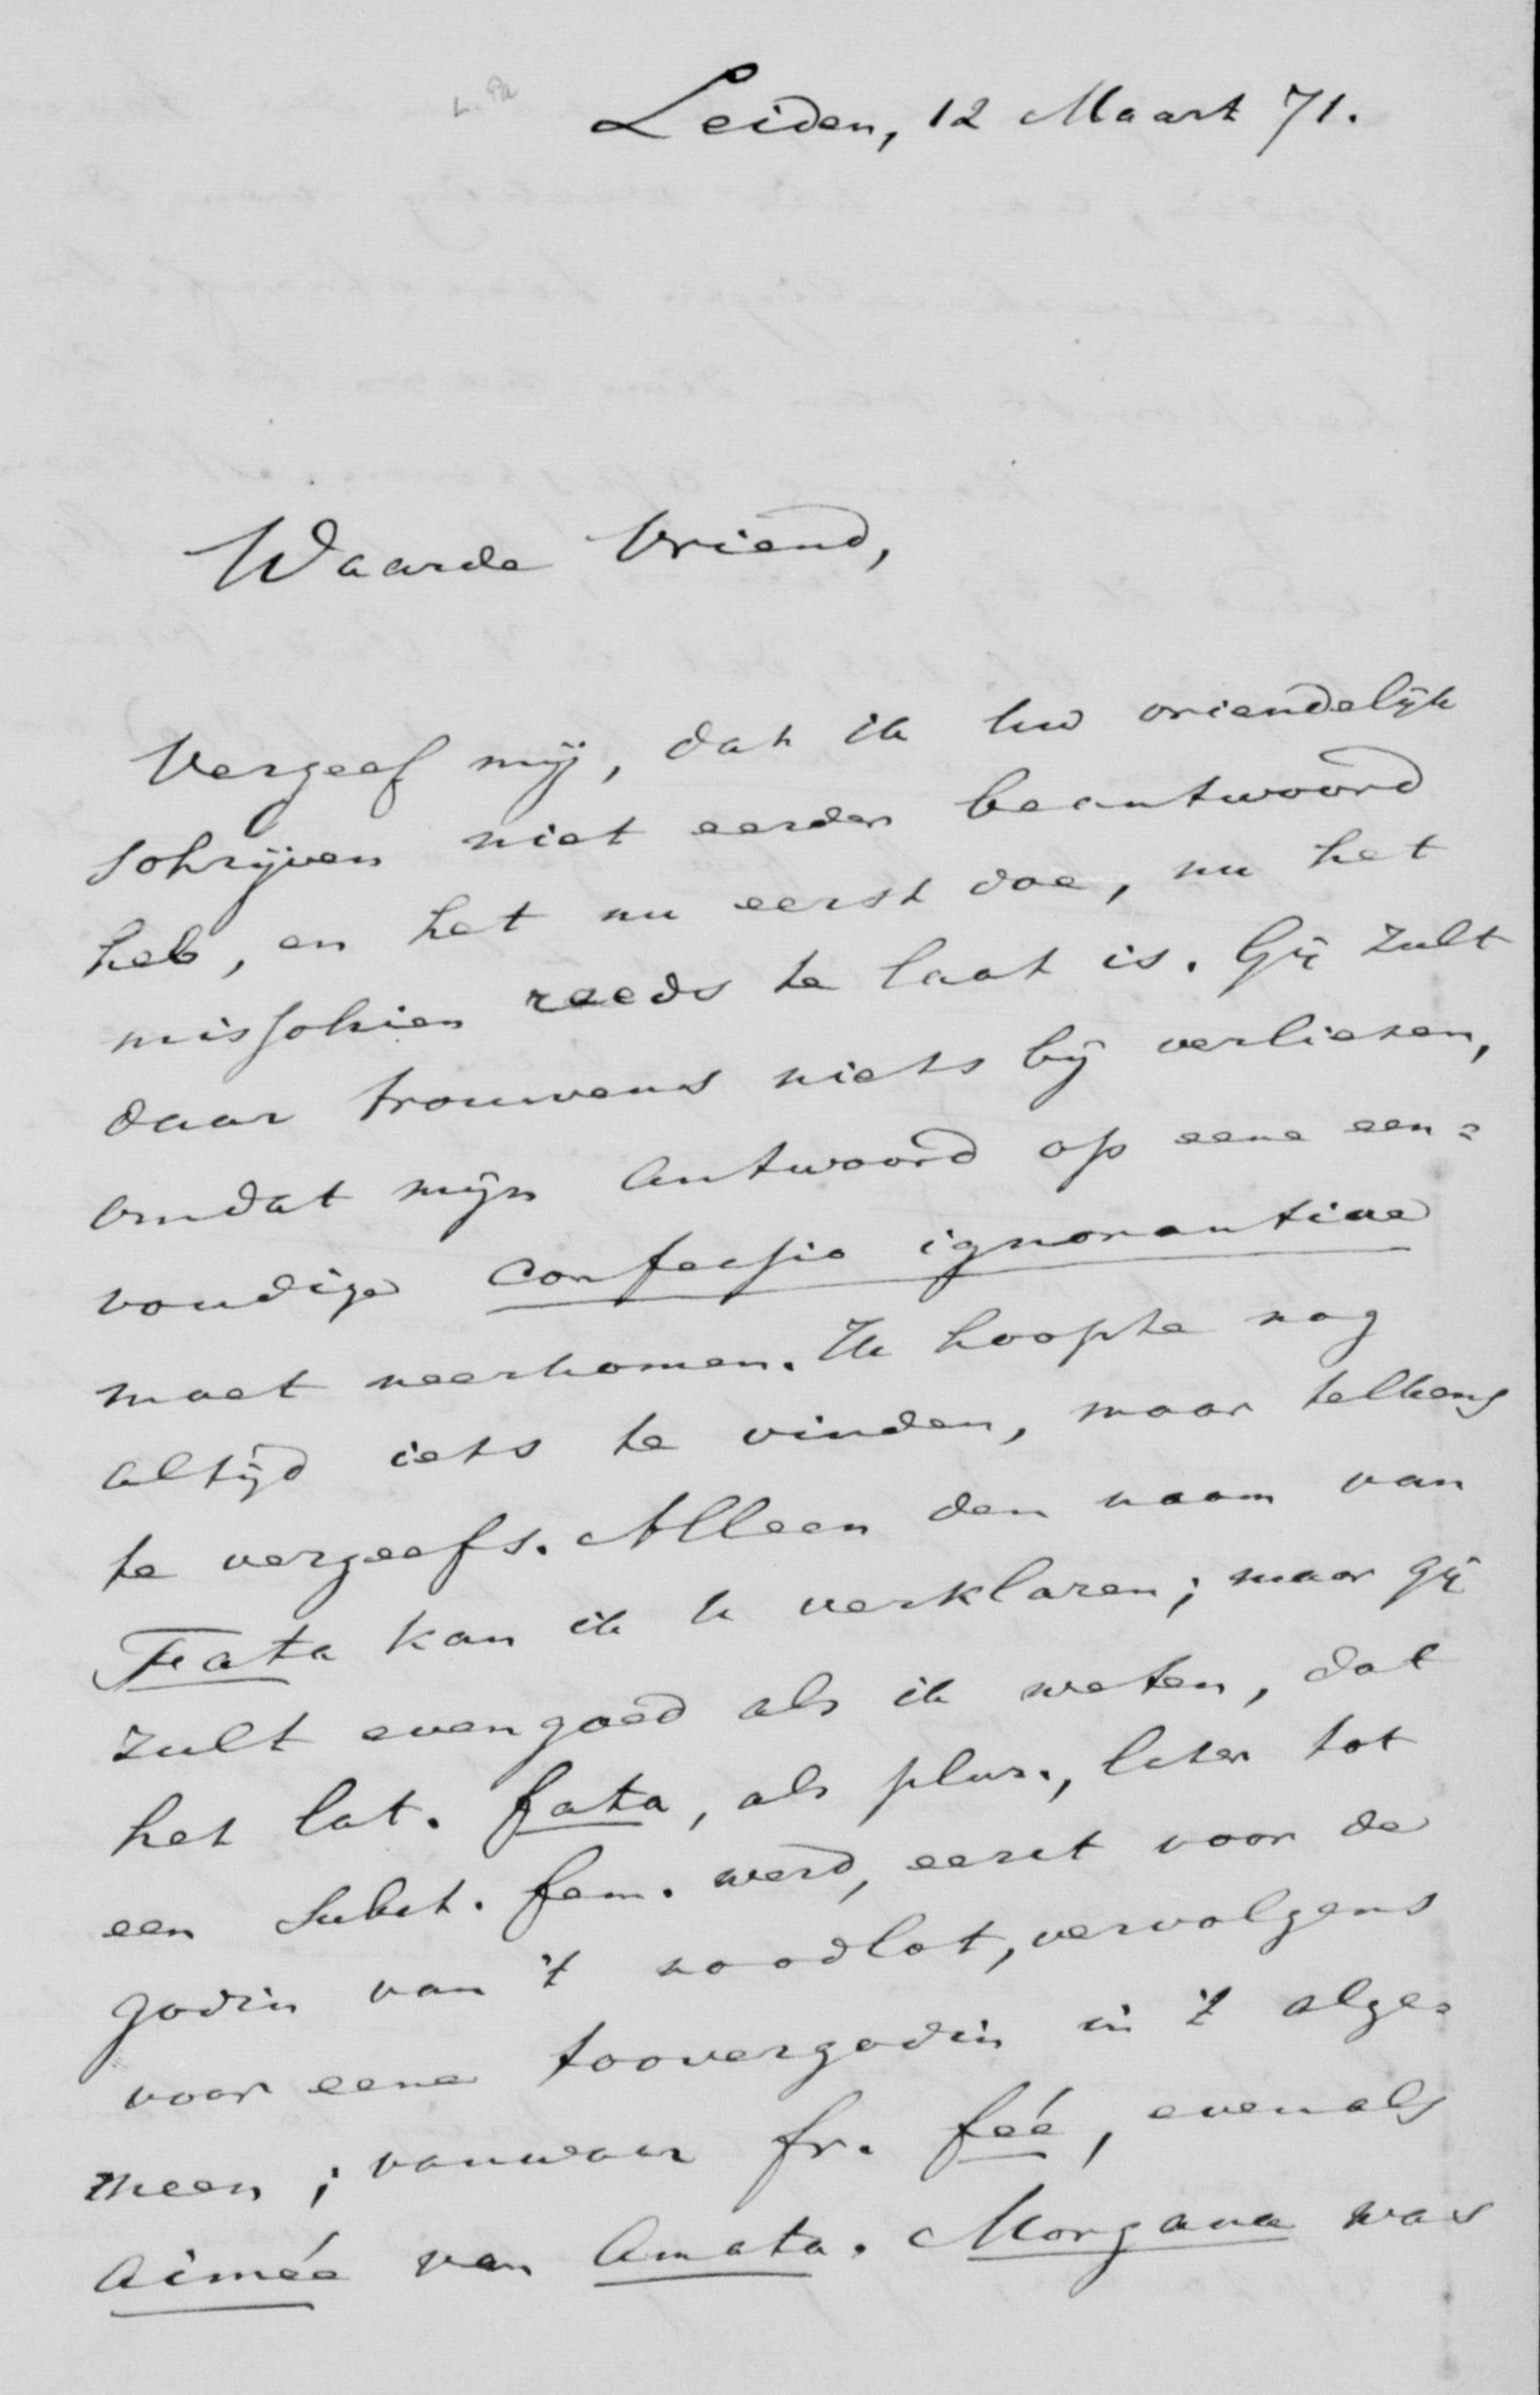 Leiden, 12 Maart 71.
Waarde Vriend,
Vergeef mij, dat ik Uw vriendelijk
schrijven niet eerder beantwoord
heb, en het nu eerst doe, nu het
misschien reeds te laat is. Gij zult
daar trouwens niets bij verliezen,
omdat mijn antwoord op eene een=
voudige confessio ignorantiae
moet neerkomen. Ik hoopte nog
altijd iets te vinden, maar telkens
te vergeefs. Alleen den naam van
Fata kan ik U verklaren; maar gij
zult evengoed als ik weten, dat
het lat. fata, als plur., later tot
een subst. fem. werd, eerst voor de
godin van 't noodlot, vervolgens
voor eene toovergodin in 't alge=
meen; vanwaar fr. fée, evenals
aimée van amata. Morgana was